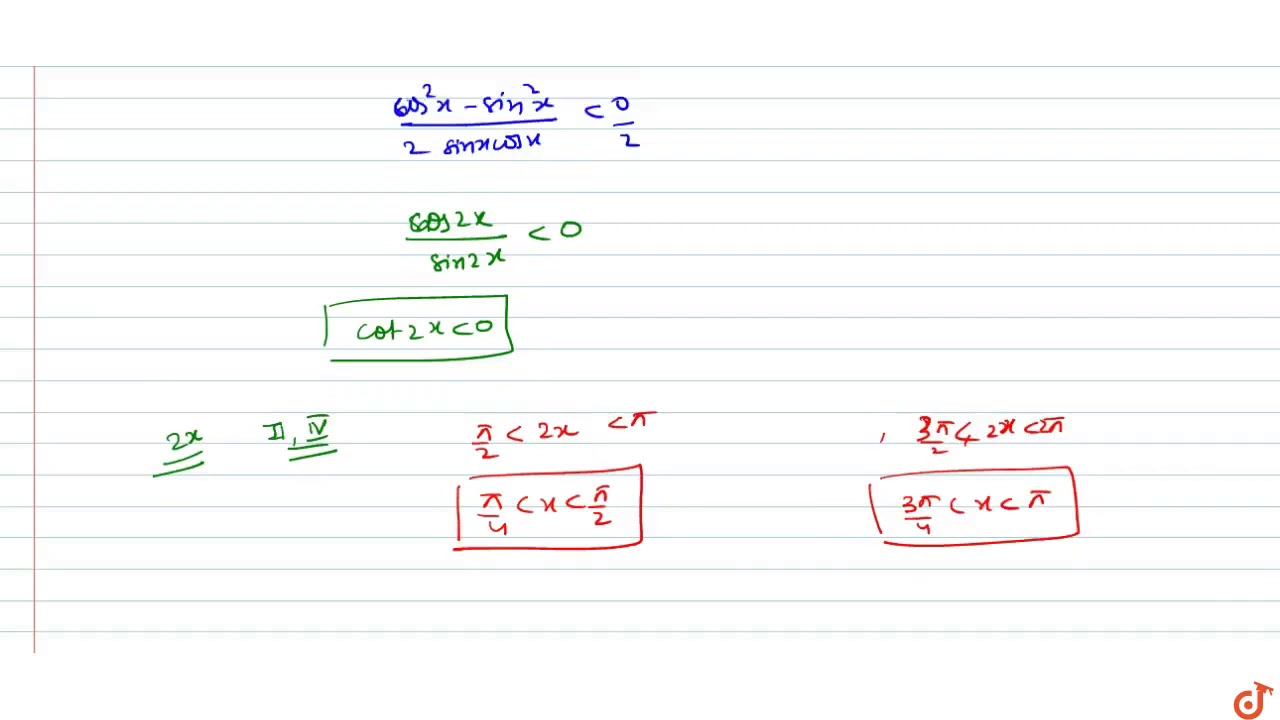 cos²x - sin²x / 2 sinx cosx < 0/2
cos2x / sin2x < 0
cot 2x < 0
2x II, IV π/2 < 2x < π , 3π/2 < 2x < 2π
π/4 < x < π/2 3π/4 < x < π